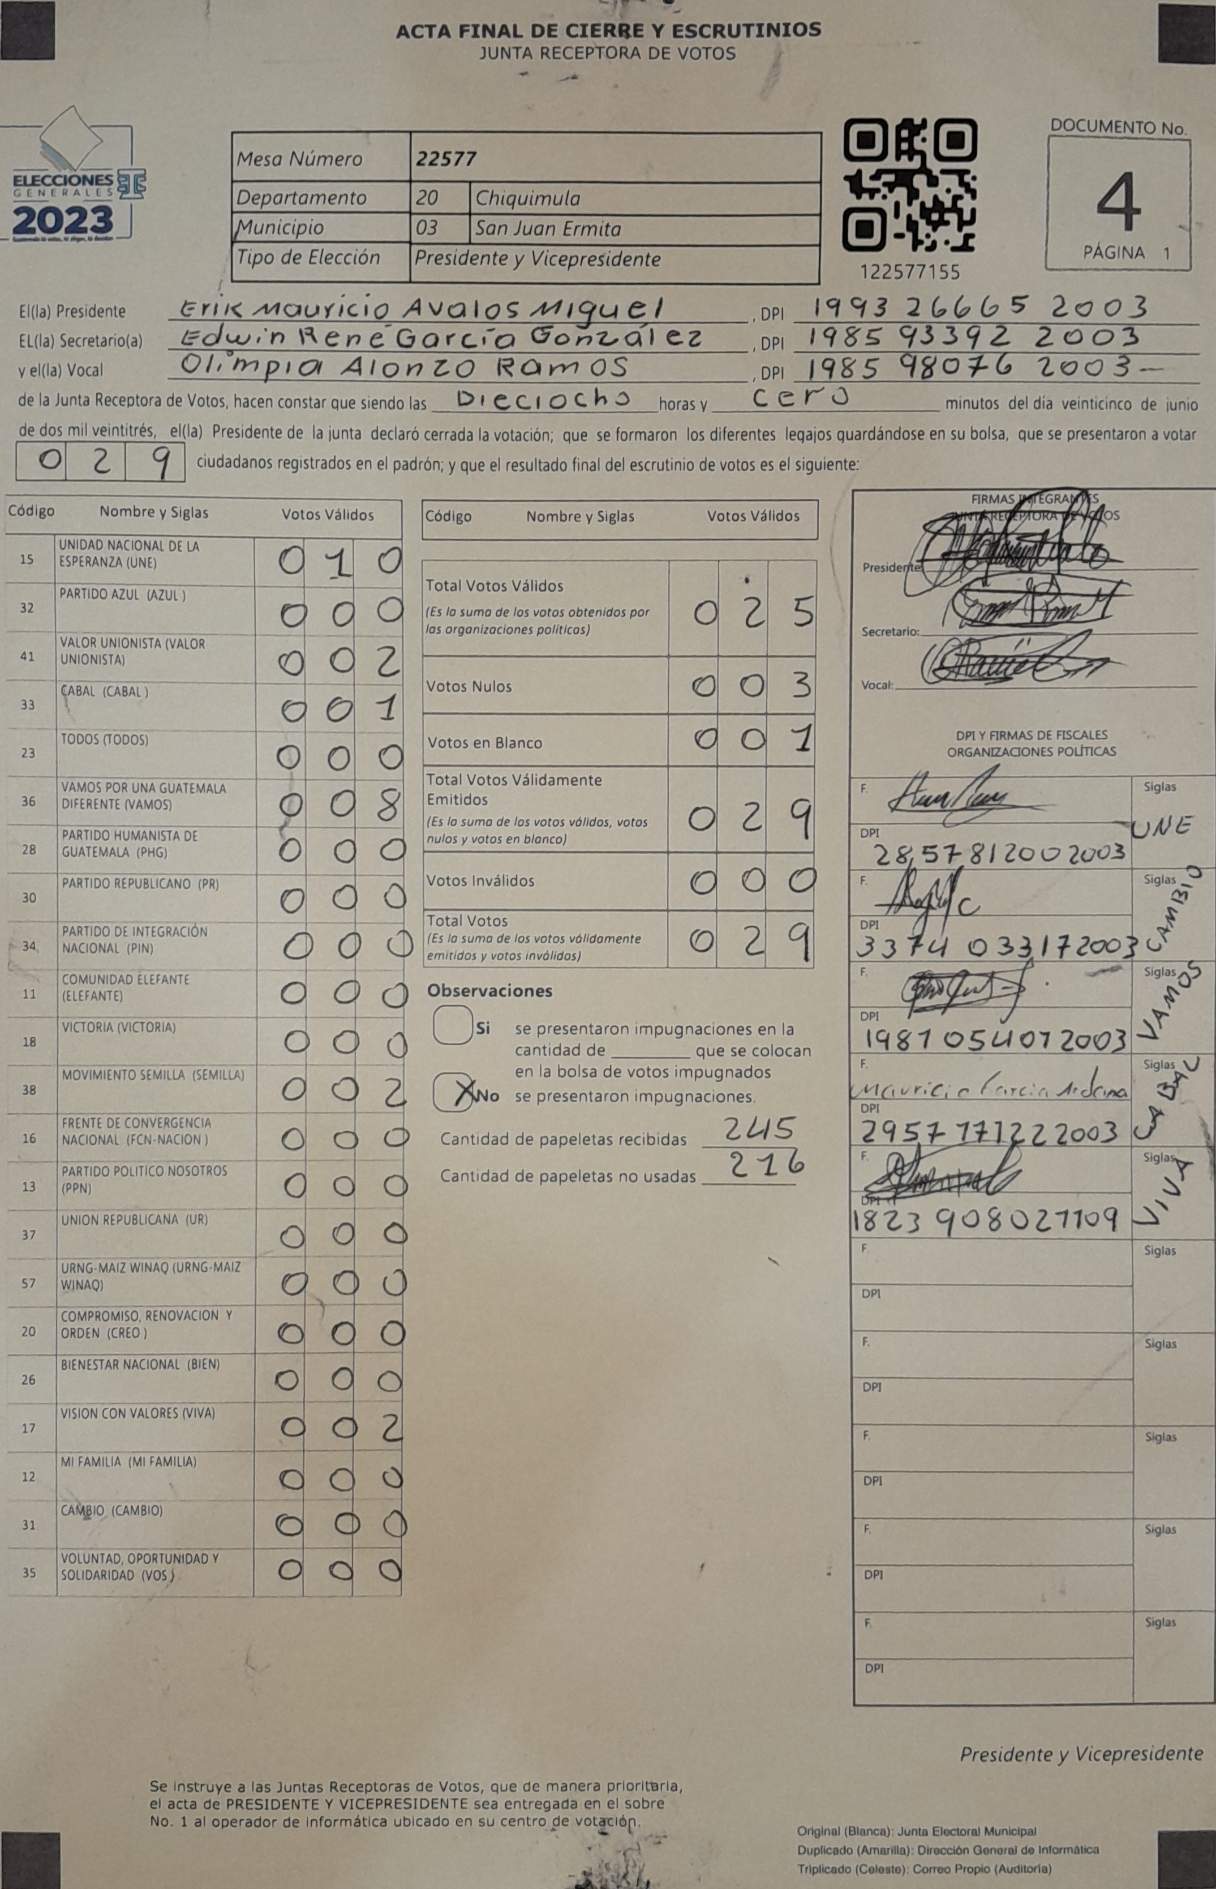 ACTA FINAL DE CIERRE Y ESCRUTINIOS
JUNTA RECEPTORA DE VOTOS
ELECCIONES
GENERALES
2023
Mesa Número 22577
Departamento 20 Chiquimula
Municipio 03 San Juan Ermita
Tipo de Elección Presidente y Vicepresidente
122577155
DOCUMENTO No.
4
PÁGINA 1
El(la) Presidente Erik Mauricio Avalos Miguel , DPI 1993 26665 2003
EL(la) Secretario(a) Edwin René García González , DPI 1985 93392 2003
y el(la) Vocal Olimpia Alonzo Ramos , DPI 1985 98076 2003
de la Junta Receptora de Votos, hacen constar que siendo las Dieciocho horas y cero minutos del día veinticinco de junio
de dos mil veintitrés, el(la) Presidente de la junta declaró cerrada la votación; que se formaron los diferentes legajos guardándose en su bolsa, que se presentaron a votar
0 2 9 ciudadanos registrados en el padrón; y que el resultado final del escrutinio de votos es el siguiente:
Código Nombre y Siglas Votos Válidos
15 UNIDAD NACIONAL DE LA ESPERANZA (UNE) 0 1 0
32 PARTIDO AZUL (AZUL ) 0 0 0
41 VALOR UNIONISTA (VALOR UNIONISTA) 0 0 2
33 CABAL (CABAL ) 0 0 1
23 TODOS (TODOS) 0 0 0
36 VAMOS POR UNA GUATEMALA DIFERENTE (VAMOS) 0 0 8
28 PARTIDO HUMANISTA DE GUATEMALA (PHG) 0 0 0
30 PARTIDO REPUBLICANO (PR) 0 0 0
34 PARTIDO DE INTEGRACIÓN NACIONAL (PIN) 0 0 0
11 COMUNIDAD ELEFANTE (ELEFANTE) 0 0 0
18 VICTORIA (VICTORIA) 0 0 0
38 MOVIMIENTO SEMILLA (SEMILLA) 0 0 2
16 FRENTE DE CONVERGENCIA NACIONAL (FCN-NACION ) 0 0 0
13 PARTIDO POLITICO NOSOTROS (PPN) 0 0 0
37 UNION REPUBLICANA (UR) 0 0 0
57 URNG-MAIZ WINAQ (URNG-MAIZ WINAQ) 0 0 0
20 COMPROMISO, RENOVACION Y ORDEN (CREO ) 0 0 0
26 BIENESTAR NACIONAL (BIEN) 0 0 0
17 VISION CON VALORES (VIVA) 0 0 2
12 MI FAMILIA (MI FAMILIA) 0 0 0
31 CAMBIO (CAMBIO) 0 0 0
35 VOLUNTAD, OPORTUNIDAD Y SOLIDARIDAD (VOS ) 0 0 0
Código Nombre y Siglas Votos Válidos
Total Votos Válidos 0 2 5
(Es la suma de los votos obtenidos por
las organizaciones políticas)
Votos Nulos 0 0 3
Votos en Blanco 0 0 1
Total Votos Válidamente
Emitidos 0 2 9
(Es la suma de los votos válidos, votos
nulos y votos en blanco)
Votos Inválidos 0 0 0
Total Votos 0 2 9
(Es la suma de los votos válidamente
emitidos y votos inválidos)
Observaciones
Si se presentaron impugnaciones en la
cantidad de ________ que se colocan
en la bolsa de votos impugnados
X No se presentaron impugnaciones.
Cantidad de papeletas recibidas 245
Cantidad de papeletas no usadas 216
FIRMAS INTEGRANTES
JUNTA RECEPTORA DE VOTOS
Presidente:
Secretario:
Vocal:
DPI Y FIRMAS DE FISCALES
ORGANIZACIONES POLÍTICAS
F. Siglas
DPI UNE
2857812002003
F. Siglas
DPI CAMBIO
3374 033172003
F. Siglas
DPI VAMOS
1987054072003
F. Mauricio García Siglas
DPI CABAL
2957 171222003
F. Siglas
DPI VIVA
1823 908027109
F. Siglas
DPI
F. Siglas
DPI
F. Siglas
DPI
F. Siglas
DPI
F. Siglas
DPI
Presidente y Vicepresidente
Se instruye a las Juntas Receptoras de Votos, que de manera prioritaria,
el acta de PRESIDENTE Y VICEPRESIDENTE sea entregada en el sobre
No. 1 al operador de informática ubicado en su centro de votación.
Original (Blanca): Junta Electoral Municipal
Duplicado (Amarilla): Dirección General de Informática
Triplicado (Celeste): Correo Propio (Auditoría)